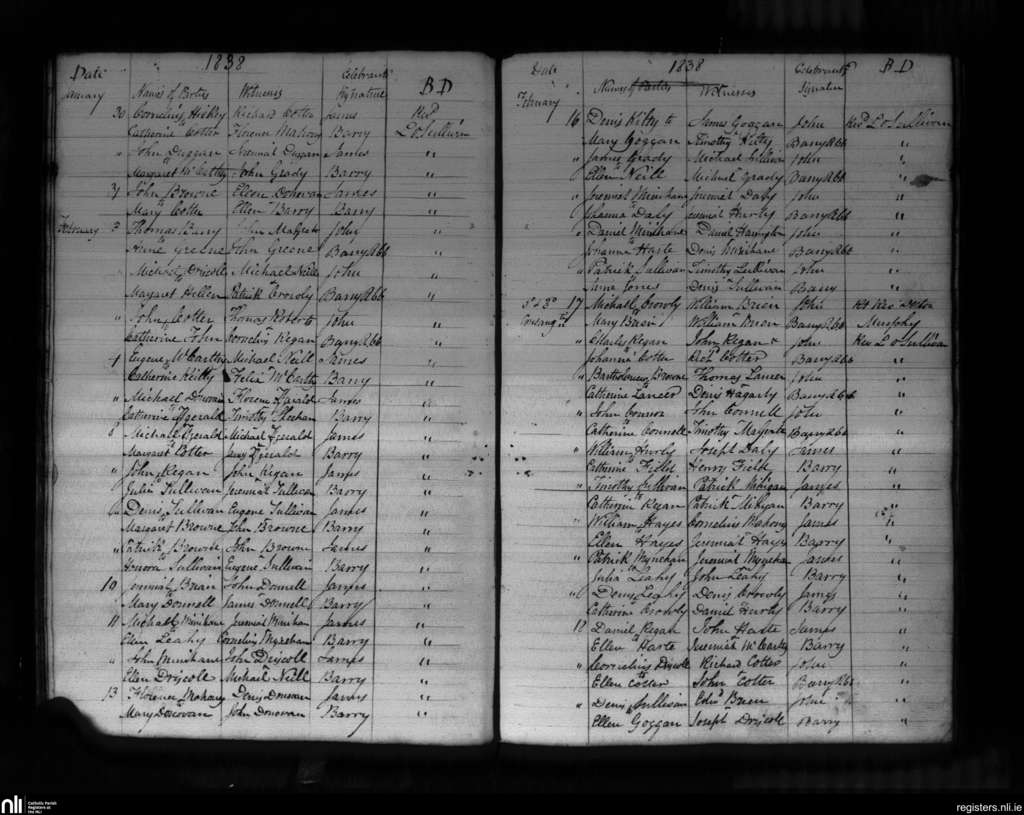 1838
Date Names of Parties Witnesses Celebrant's Signature B D
January
30 Cornelius Hickey Richard Cotter James Revd
Catherine Cotter Florence Mahony Barry L O Sullivan
" John Duggan Jeremiah Duggan James "
Margaret McCarthy John Grady Barry "
31 John Browne Ellen Donovan James "
Mary Cotter Ellen Barry Barry "
February 3 Thomas Barry John John "
Anne Greene John Greene Barry Abb "
" Michael Driscoll Michael Neill John "
Margaret Hellen Patrick Crowly Barry Abb "
" John Cotter Thomas Roberts John "
Catherine Cornelius Regan Barry Abb "
4 Eugene McCarthy Michael Neill James "
Catherine Keilly Felix McCarthy Barry "
" Michael Donovan Florence James "
Catherine Fzgerald Timothy Barry "
5 Michael Fzgerald Michael Fzgerald James "
Margaret Cotter Fzgerald Barry "
" John Regan John Regan James "
Julia Sullivan Jeremiah Sullivan Barry "
6 Denis Sullivan Eugene Sullivan James "
Margaret Browne John Browne Barry "
" Patrick Browne John Browne James "
Honora Sullivan Eugene Sullivan Barry "
10 Jeremiah Brian John Donnell James "
Mary Donnell James Donnell Barry "
11 Michael Minihane Jeremiah Minihan James "
Ellen Leahy Cornelius Mynehan Barry "
" John Minihane John Driscoll James "
Ellen Driscoll Michael Neill Barry "
13 Florence Mahony Denis Donovan James "
Mary Donovan John Donovan Barry "
1838
Date Names of Parties Witnesses Celebrant's Signature B D
February
16 Denis Kilty to James Goggan John Revd L O Sullivan
Mary Goggan Timothy Kilty Barry Abb "
" James Grady Michael Sullivan John "
Ellen Neill Michael Grady Barry Abb "
" Jeremiah Minihane Jeremiah Daly John "
Johanna Daly Jeremiah Hurly Barry Abb "
" Daniel Minihane Daniel Harrington John "
Johanna Haste Denis Minihane Barry Abb "
" Patrick Sullivan Timothy Sullivan John "
Anna Jones Denis Sullivan Barry "
3d & 3d 17 Michael Crowly William Brien John Rt Rev Doctor
Consang Mary Brien William Brien Barry Abb Murphy
" Charles Regan John Regan John Rev L O Sullivan
Johanna Cotter Cotter Barry Abb "
" Bartholomew Browne Thomas Lancer John "
Catherine Lancer Denis Hagarty Barry Abb "
" John Connor John Connell John "
Catherine Connell Timothy Barry Abb "
" William Hurly Joseph Daly James "
Catherine Field Henry Field Barry "
" Timothy Sullivan Patrick Mihigan James "
Catherine Regan Patrick Barry "
" William Hayes Cornelius Mahony James "
Ellen Hayes Jeremiah Hayes Barry "
" Patrick Mynehan Jeremiah Mynehan James "
Julia Leahy John Leahy Barry "
" Denis Leahy Denis Crowly James "
Catherine Crowly Daniel Hurly Barry "
18 Daniel Regan John Haste James "
Ellen Haste Jeremiah McCarthy Barry "
" Cornelius Driscoll Richard Cotter John "
Ellen Cotter John Cotter Barry Abb "
" Denis Sullivan Brien John "
Ellen Goggan Joseph Driscoll Barry "
nli Catholic Parish
Registers at
the NLI
registers.nli.ie